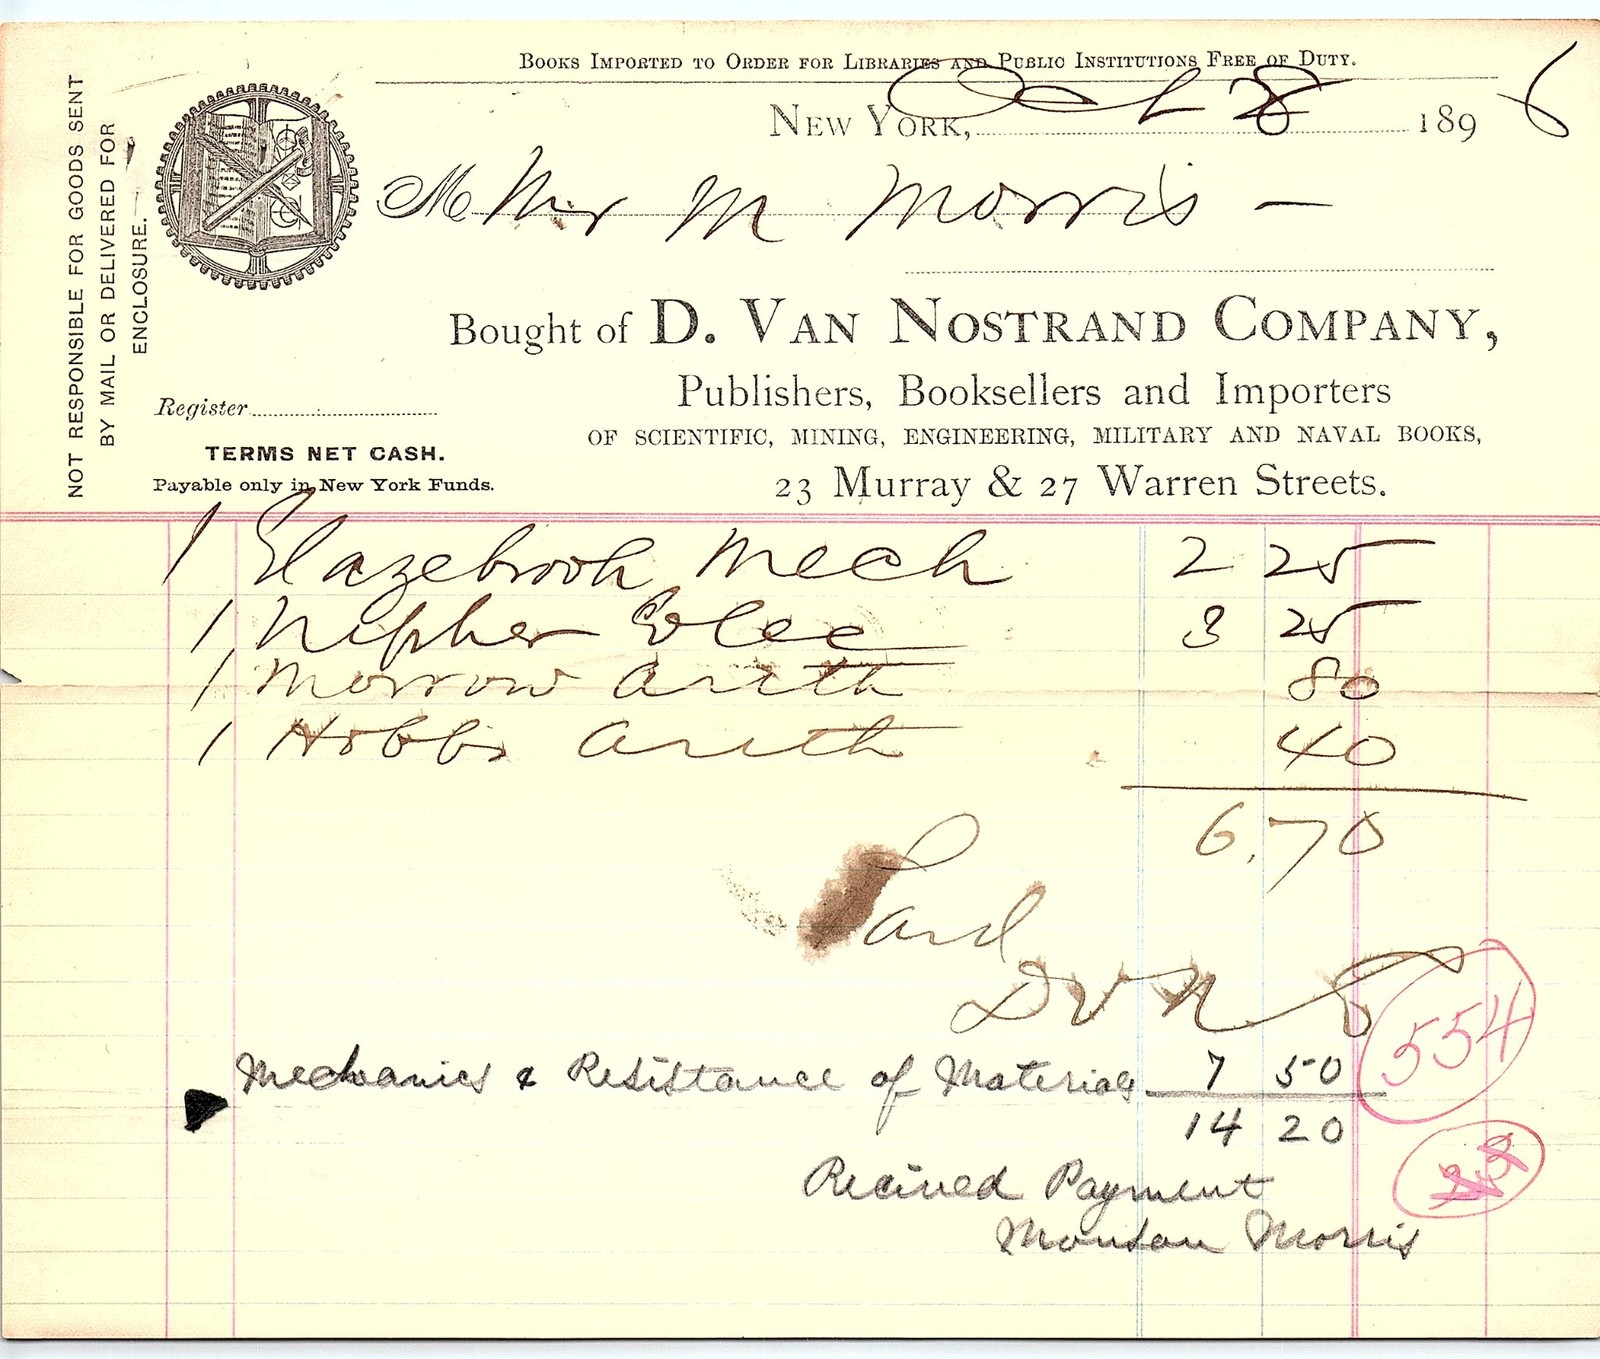 Books Imported to Order for Libraries and Public Institutions Free of Duty.
New York, Oct 28 1896
M Mr M Morris —
NOT RESPONSIBLE FOR GOODS SENT
BY MAIL OR DELIVERED FOR
ENCLOSURE.
Bought of D. Van Nostrand Company,
Publishers, Booksellers and Importers
Register
OF SCIENTIFIC, MINING, ENGINEERING, MILITARY AND NAVAL BOOKS,
TERMS NET CASH.
Payable only in New York Funds.
23 Murray & 27 Warren Streets.
1 Glazebrook Mech 2 25
1 Nipher Elec 3 25
1 Morrow Arith 80
1 Hobbs Arith 40
6.70
Paid
D V N Co
554
Mechanics & Resistance of Materials 7 50
14 20
Recived Payment
Morris